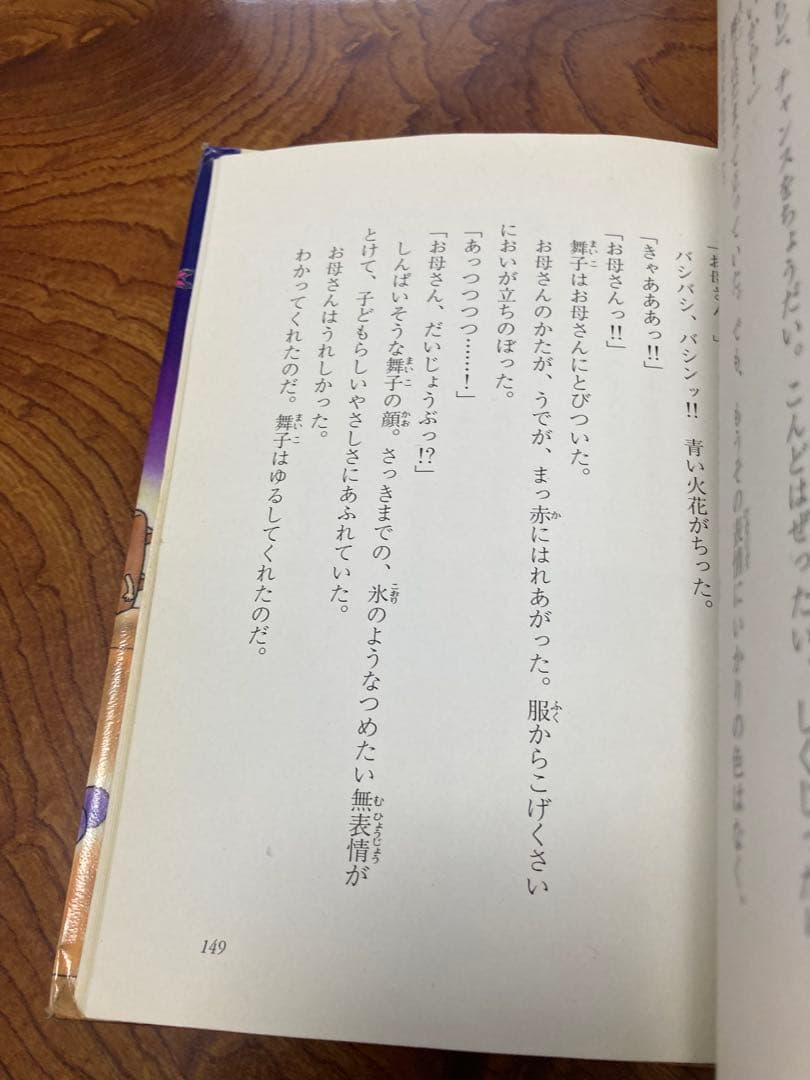 チャンスをちょうだい。こんどはぜったい、しくじった
「お母さん」
バシバシ、バシンッ!! 青い火花がちった。
「きゃあああっ!!」
「お母さんっ!!」
舞子はお母さんにとびついた。
お母さんのかたが、うでが、まっ赤にはれあがった。服からこげくさい
においが立ちのぼった。
「あっつつつ……!」
「お母さん、だいじょうぶっ!?」
しんぱいそうな舞子の顔。さっきまでの、氷のようなつめたい無表情が
とけて、子どもらしいやさしさにあふれていた。
お母さんはうれしかった。
わかってくれたのだ。舞子はゆるしてくれたのだ。
149